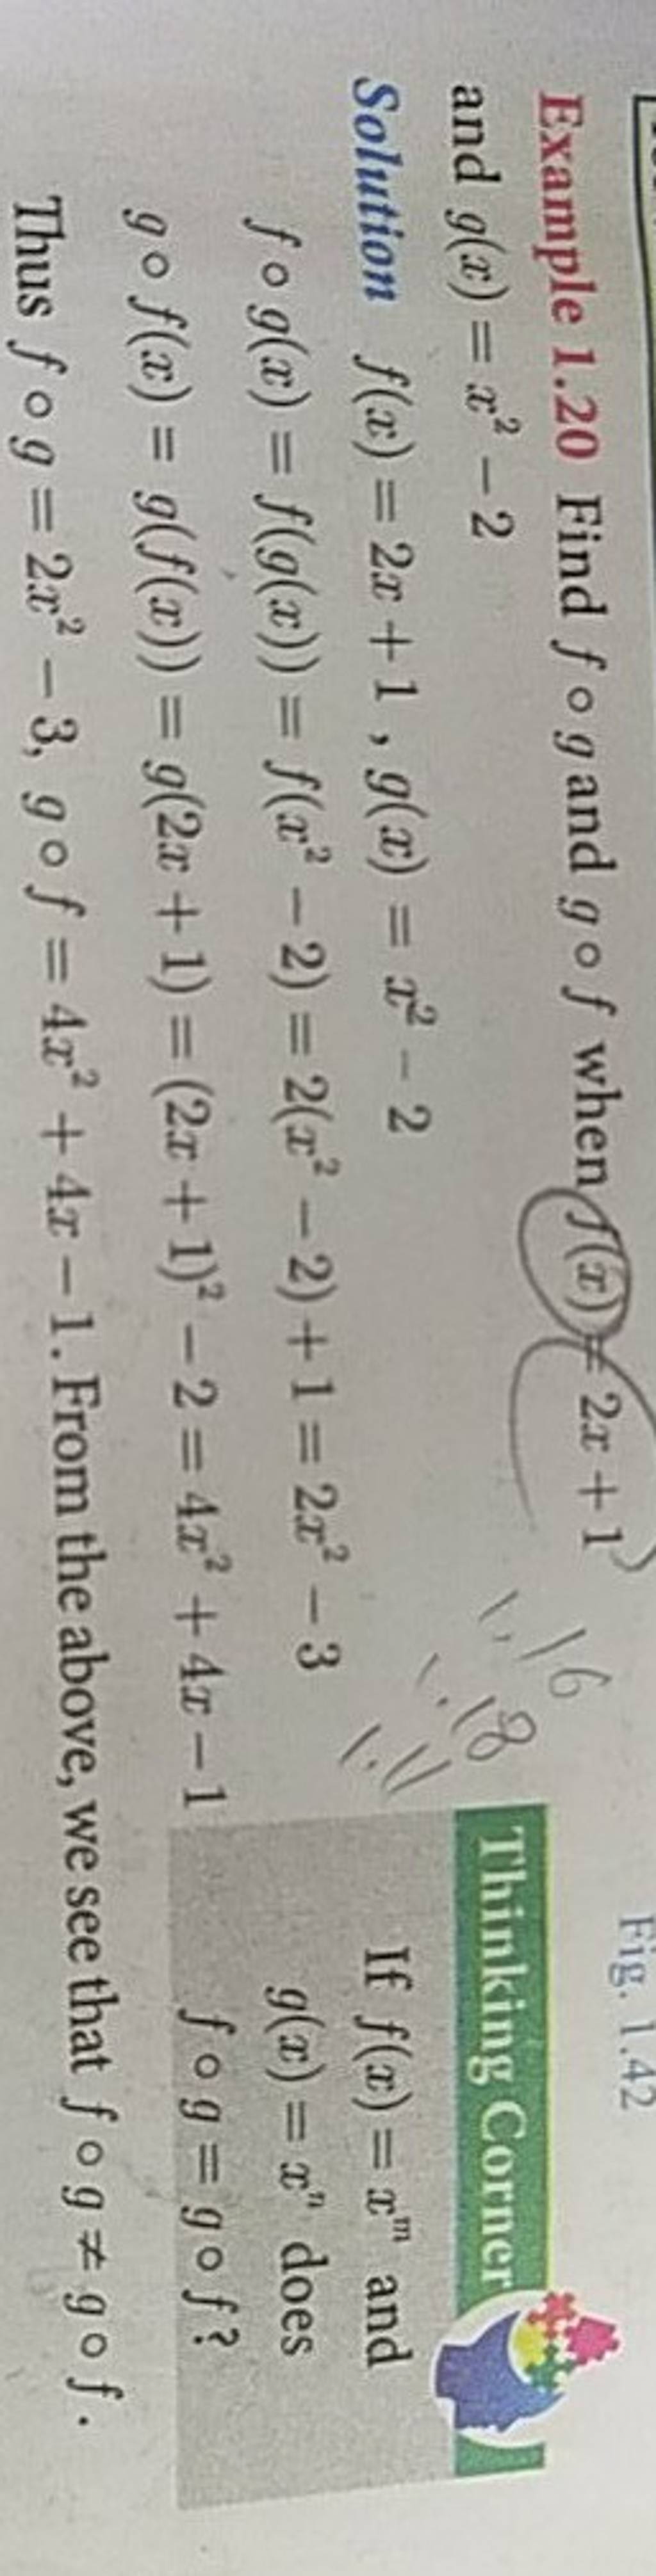 Fig. 1.42
Example 1.20 Find f ∘ g and g ∘ f when f(x) = 2x + 1
and g(x) = x² − 2
Solution f(x) = 2x + 1 , g(x) = x² − 2
f ∘ g(x) = f(g(x)) = f(x² − 2) = 2(x² − 2) + 1 = 2x² − 3
g ∘ f(x) = g(f(x)) = g(2x + 1) = (2x + 1)² − 2 = 4x² + 4x − 1
Thus f ∘ g = 2x² − 3, g ∘ f = 4x² + 4x − 1. From the above, we see that f ∘ g ≠ g ∘ f .
1.16
1.18
1.11
Thinking Corner
If f(x) = xᵐ and
g(x) = xⁿ does
f ∘ g = g ∘ f ?